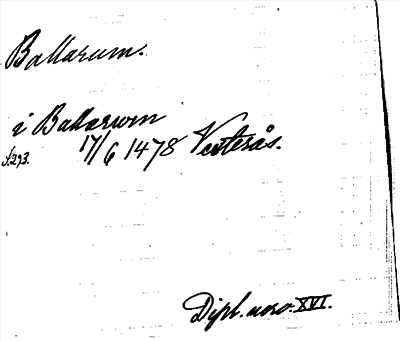 Ballarum.
i Ballarwm
17/6 1478 Vesterås.
s.293.
Dipl. norv. XVI.